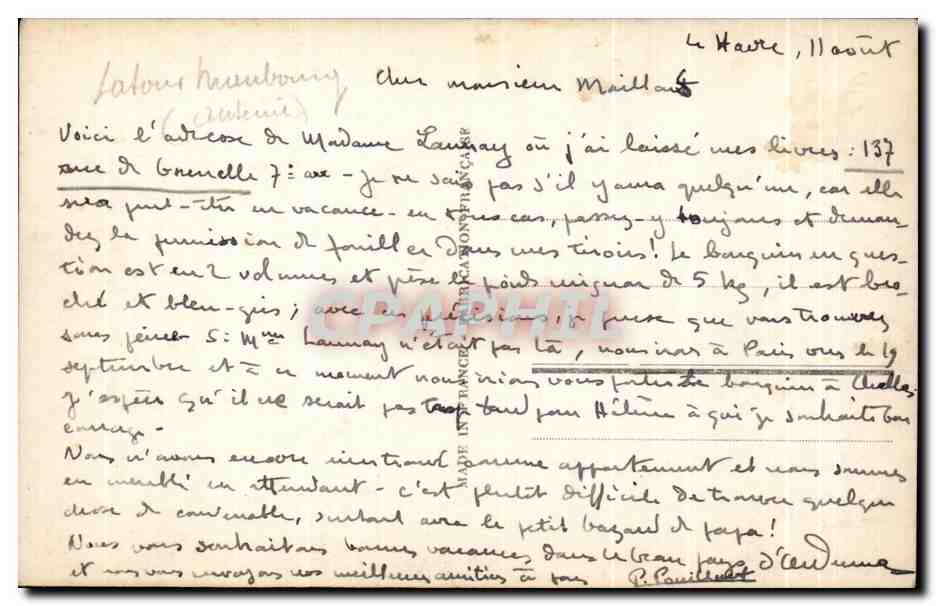 Le Havre, 11 août
Cher monsieur Maillard
Latour
Voici l'adresse de Madame Launay où j'ai laissé mes livres : 137
rue de Grenelle 7: arr - Je ne sais pas s'il y aura quelqu'un, car elle
sera peut-être en vacances - en tous cas, passez-y toujours et deman-
dez la permission de fouiller dans mes tiroirs! Le bouquin en ques-
tion est en 2 volumes et pèse le poids mignon de 5 kg, il est bro-
ché et bleu-gris; avec ces précisions, je pense que vous trouverez
sans peine. Si Mme Launay n'était pas là, nous irons à Paris vers le 19
septembre et à ce moment nous irions vous porter le bouquin à Chelles.
J'espère qu'il ne serait pas trop tard pour Hélène à qui je souhaite bon
courage.
Nous n'avons encore rien trouvé comme appartement et nous sommes
en meublé en attendant - c'est plutôt difficile de trouver quelque
chose de convenable, surtout avec le petit bazard de papa!
Nous vous souhaitons bonnes vacances dans le beau pays d'
et nous vous envoyons nos meilleures amitiés à tous
MADE IN FRANCE - FABRICATION FRANÇAISE
CPAPHIL